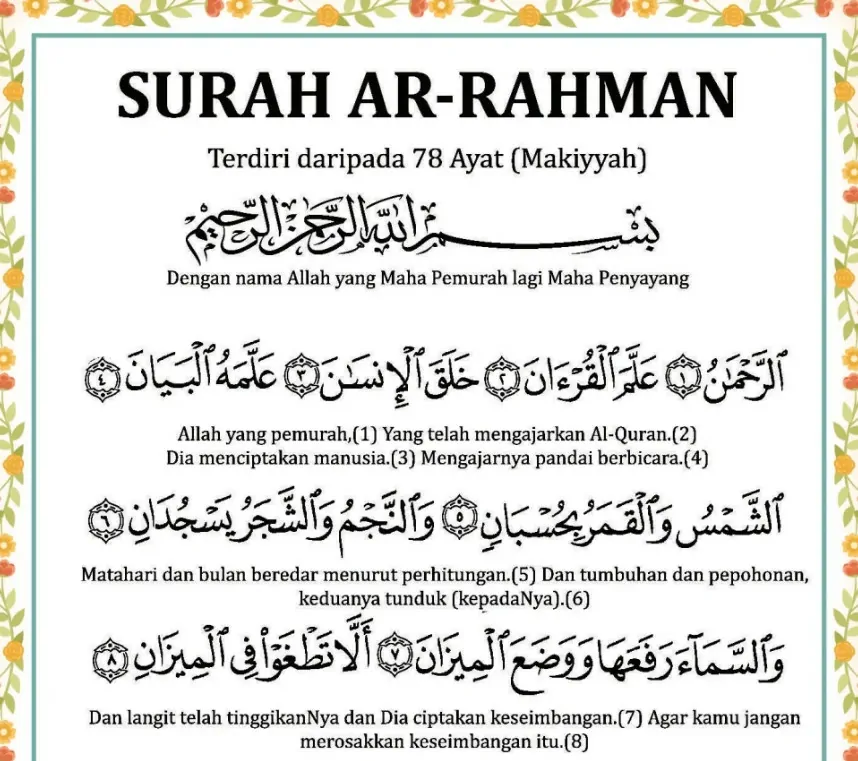 SURAH AR-RAHMAN
Terdiri daripada 78 Ayat (Makiyyah)
بِسْمِ اللَّهِ الرَّحْمَٰنِ الرَّحِيمِ
Dengan nama Allah yang Maha Pemurah lagi Maha Penyayang
الرَّحْمَٰنُ ١ عَلَّمَ الْقُرْءَانَ ٢ خَلَقَ الْإِنسَٰنَ ٣ عَلَّمَهُ الْبَيَانَ ٤
Allah yang pemurah,(1) Yang telah mengajarkan Al-Quran.(2)
Dia menciptakan manusia.(3) Mengajarnya pandai berbicara.(4)
الشَّمْسُ وَالْقَمَرُ بِحُسْبَانٍ ٥ وَالنَّجْمُ وَالشَّجَرُ يَسْجُدَانِ ٦
Matahari dan bulan beredar menurut perhitungan.(5) Dan tumbuhan dan pepohonan,
keduanya tunduk (kepadaNya).(6)
وَالسَّمَآءَ رَفَعَهَا وَوَضَعَ الْمِيزَانَ ٧ أَلَّا تَطْغَوْا فِي الْمِيزَانِ ٨
Dan langit telah tinggikanNya dan Dia ciptakan keseimbangan.(7) Agar kamu jangan
merosakkan keseimbangan itu.(8)